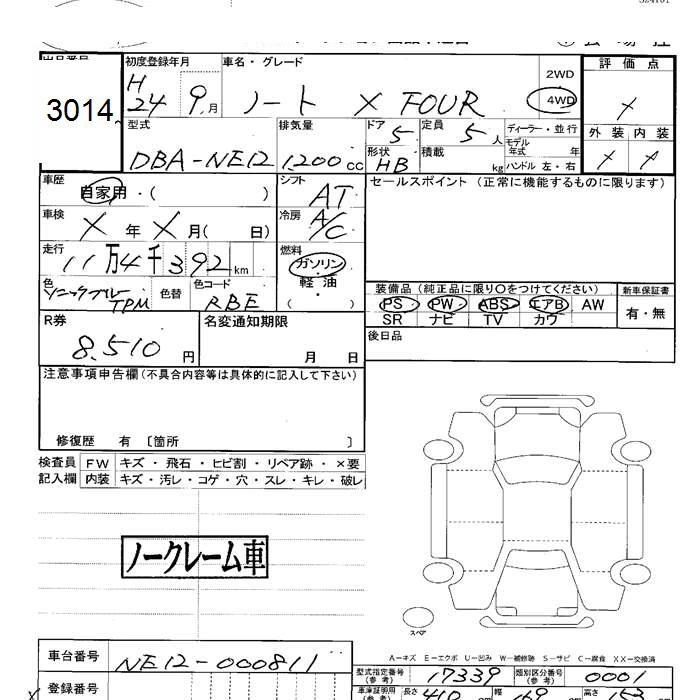 3014
初度登録年月
H24 9月
車名・グレード
ノート X FOUR
2WD
4WD
評価点
×
外装 内装
× ×
型式
DBA-NE12
排気量
1,200cc
ドア
5
形状
HB
定員
5人
積載
kg
ディーラー・並行
モデル年式 年
ハンドル 左・右
車歴
自家用・( )
シフト
AT
セールスポイント(正常に機能するものに限ります)
車検
X年X月( 日)
冷房
A/C
走行
11万4千392km
燃料
ガソリン
軽油
・( )
色
ソニックブルー
TPM
色替
色コード
RBE
装備品(純正品に限り○をつけてください)
PS PW ABS エアB AW
SR ナビ TV カワ
新車保証書
有・無
R券
8,510円
名変通知期限
月 日
後日品
注意事項申告欄(不具合内容等は具体的に記入して下さい)
修復歴 有 〔箇所 〕
検査員 FW キズ・飛石・ヒビ割・リペア跡・×要
記入欄 内装 キズ・汚レ・コゲ・穴・スレ・キレ・破レ
ノークレーム車
スペア
A-キズ E-エクボ U-凹み W-補修跡 S-サビ C-腐食 XX-交換済
車台番号
NE12-000811
型式指定番号(参考)
17339
類別区分番号(参考)
0001
登録番号
車庫証明用(参考)
長さ 410 cm
幅 169 cm
高さ 153